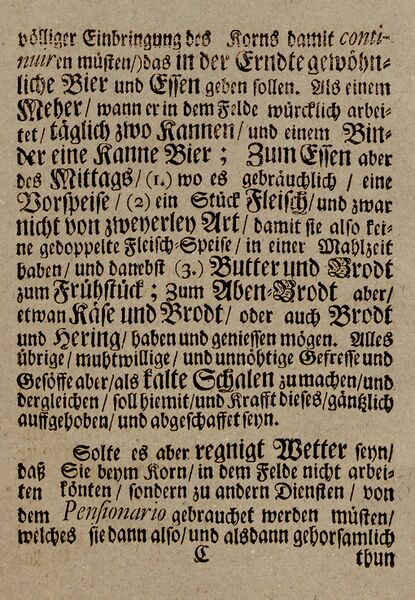 völliger Einbringung des Korns damit conti-
nuiren müsten/) das in der Erndte gewöhn-
liche Bier und Essen geben sollen. Als einem
Meher/ wann er in dem Felde würcklich arbei-
tet/ täglich zwo Kannen/ und einem Bin-
der eine Kanne Bier; Zum Essen aber
des Mittags/ (1.) wo es gebräuchlich/ eine
Vorspeise/ (2) ein Stück Fleisch/ und zwar
nicht von zweyerley Art/ damit sie also kei-
ne gedoppelte Fleisch-Speise/ in einer Mahlzeit
haben/ und danebst (3.) Butter und Brodt
zum Frühstück; Zum Aben-Brodt aber/
etwan Käse und Brodt/ oder auch Brodt
und Hering/ haben und geniessen mögen. Alles
übrige/ muhtwillige/ und unnöhtige Gefresse und
Gesöffe aber/ als kalte Schalen zu machen/ und
dergleichen/ soll hiemit/ und Krafft dieses/ gäntzlich
auffgehoben/ und abgeschaffet seyn.
Solte es aber regnigt Wetter seyn/
daß Sie beym Korn/ in dem Felde nicht arbei-
ten könten/ sondern zu andern Diensten/ von
dem Pensionario gebrauchet werden müsten/
welches sie dann also/ und alsdann gehorsamlich
C thun